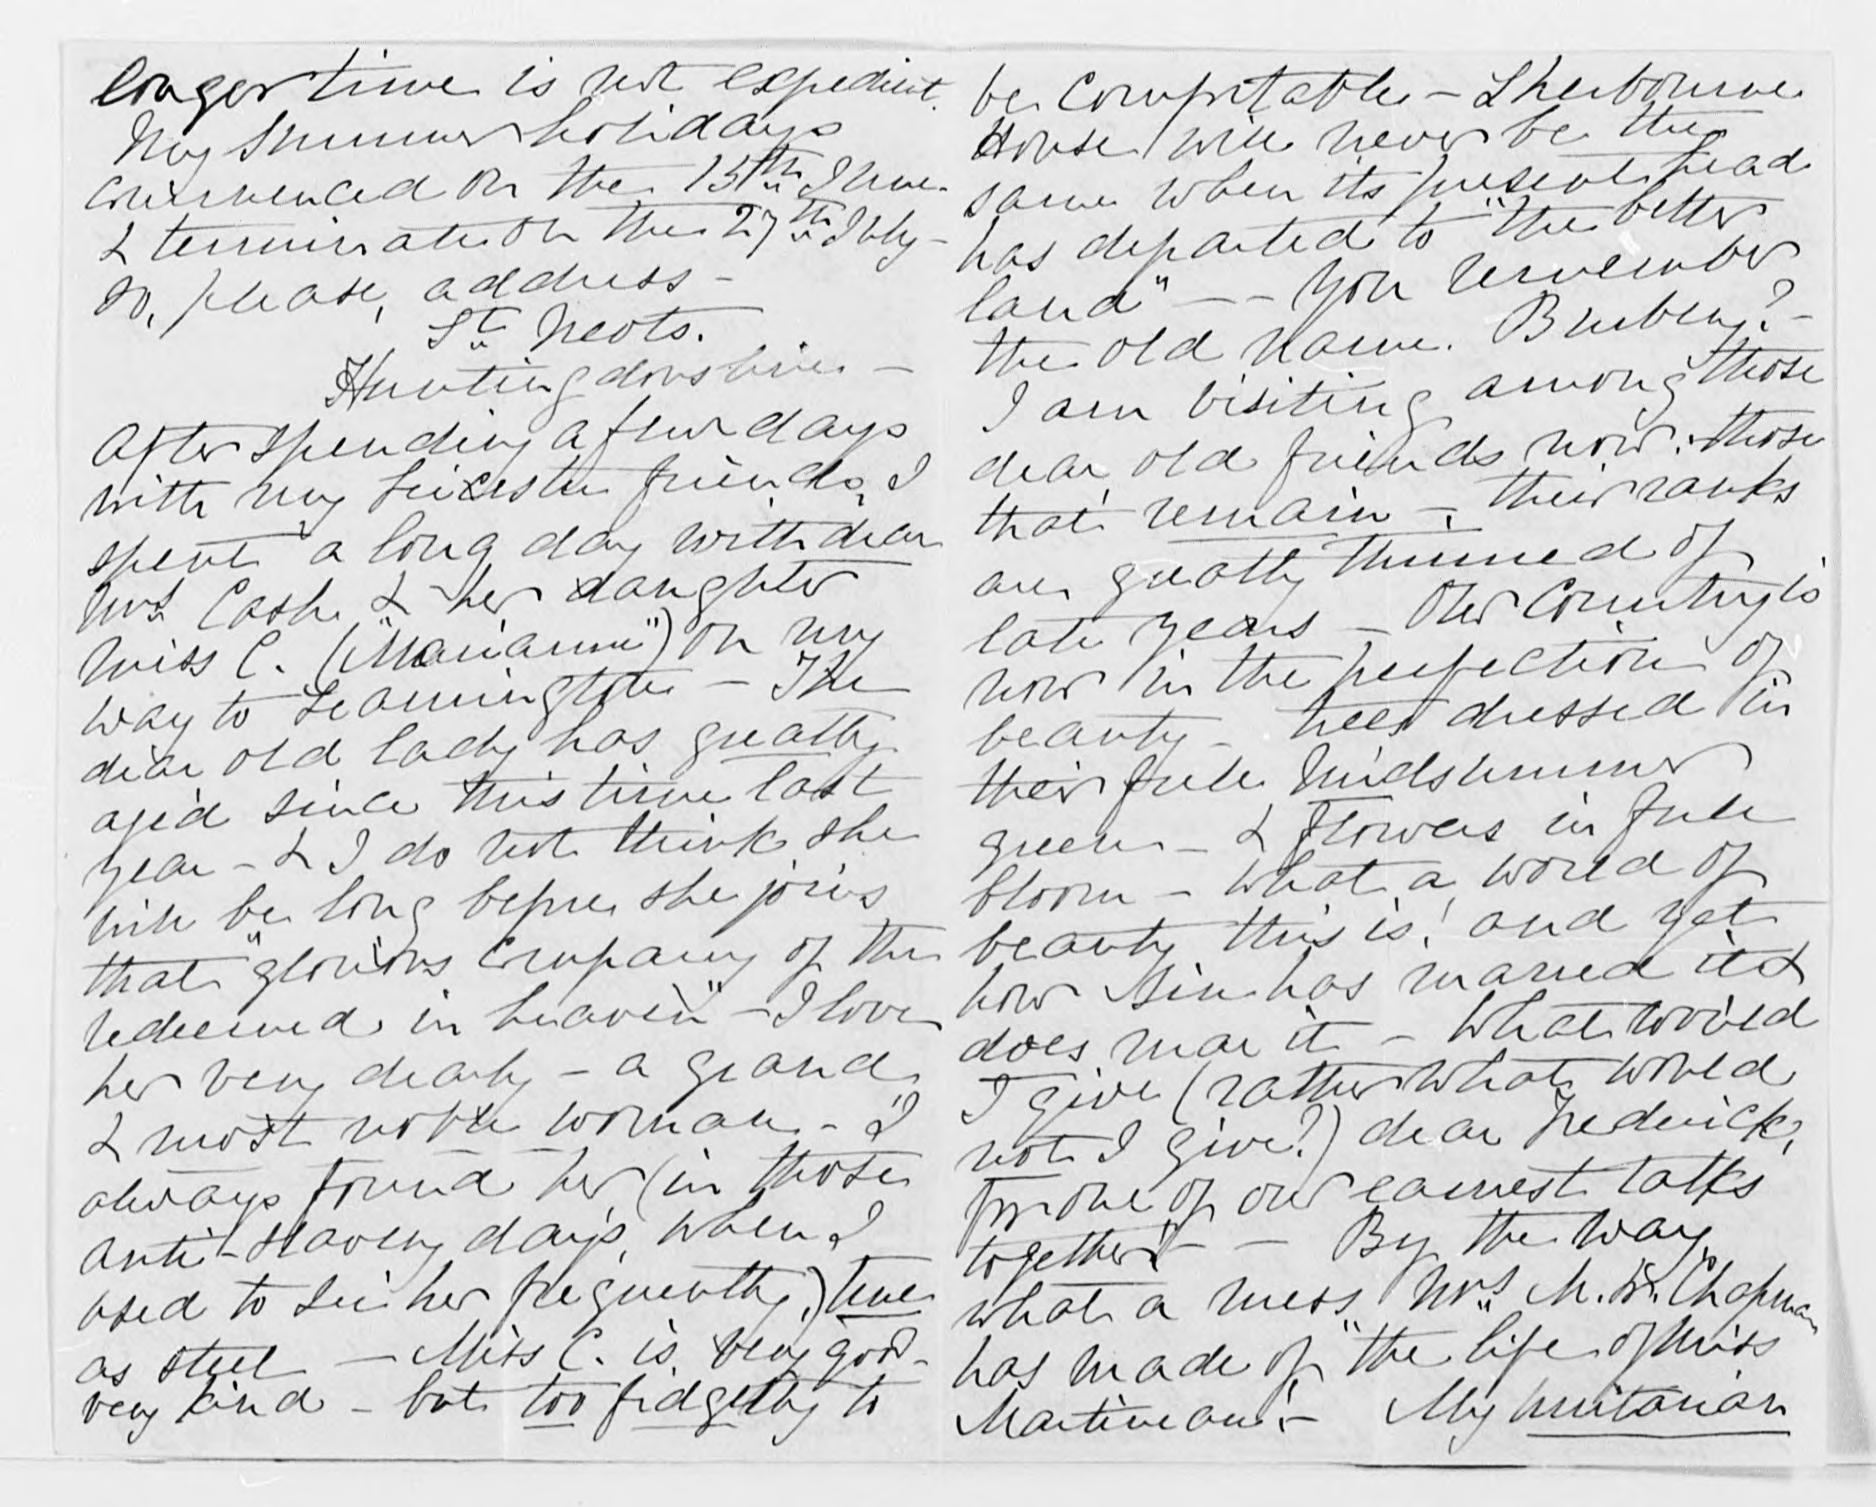 longer time is not expedient.
My Summer holidays
commenced on the 15th June
& terminate on the 27th July -
so, please, address -
St. Neots.
Huntingdonshire -
After spending a few days
with my Leicester friends, I
spent a long day with dear
Mrs Cash & her daughter
Miss C. ("Marianne") on my
way to Leamington - The
dear old lady has greatly
aged since this time last
year - & I do not think she
will be long before she joins
that "glorious company of the
redeemed in heaven" - I love
her very dearly - a grand
& most noble woman - I
always found her, (in those
anti-slavery days, when I
used to see her frequently,) true
as steel - Miss C. is very good -
very kind - but too fidgetty to
be Comfortable - Sherbourne
House will never be the
same when its present head
has departed to "the better
land" - - You remember
the old name. Burbery? -
I am visiting among those
dear old friends now: those
that remain -, their ranks
are greatly thinned of
late years - Our Country is
now in the perfection of
beauty - trees dressed in
their full Midsummer
green - & flowers in full
bloom - what a world of
beauty this is! and yet
how Sin has marred it &
does mar it - What would
I give (rather what would
not I give?) dear Frederick,
for one of our earnest talks
together! - - By the way,
what a mess Mrs M. W. Chapman
has made of "the life of Miss
Martineau! - My Unitarian